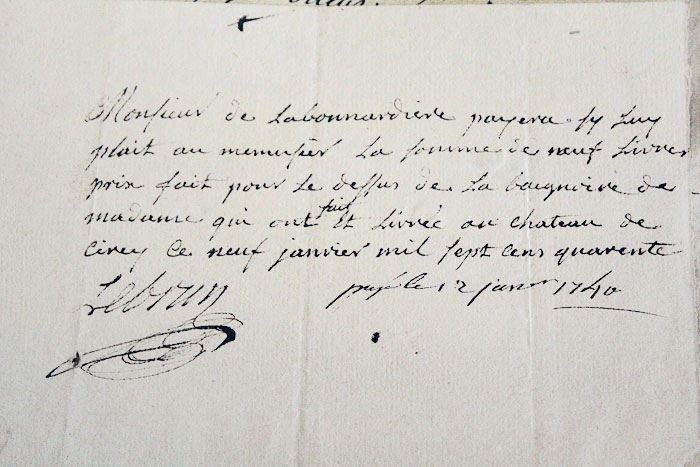 Monsieur de Labonnardiere payera sy luy
plait au menusier La somme de neuf Livres
prix fait pour Le dessus de La baignoire de
madame qui ont fait et Livrée au chateau de
Cirey Ce neuf janvier mil sept cens quarente
Lebrun
payé le 12 janer 1740